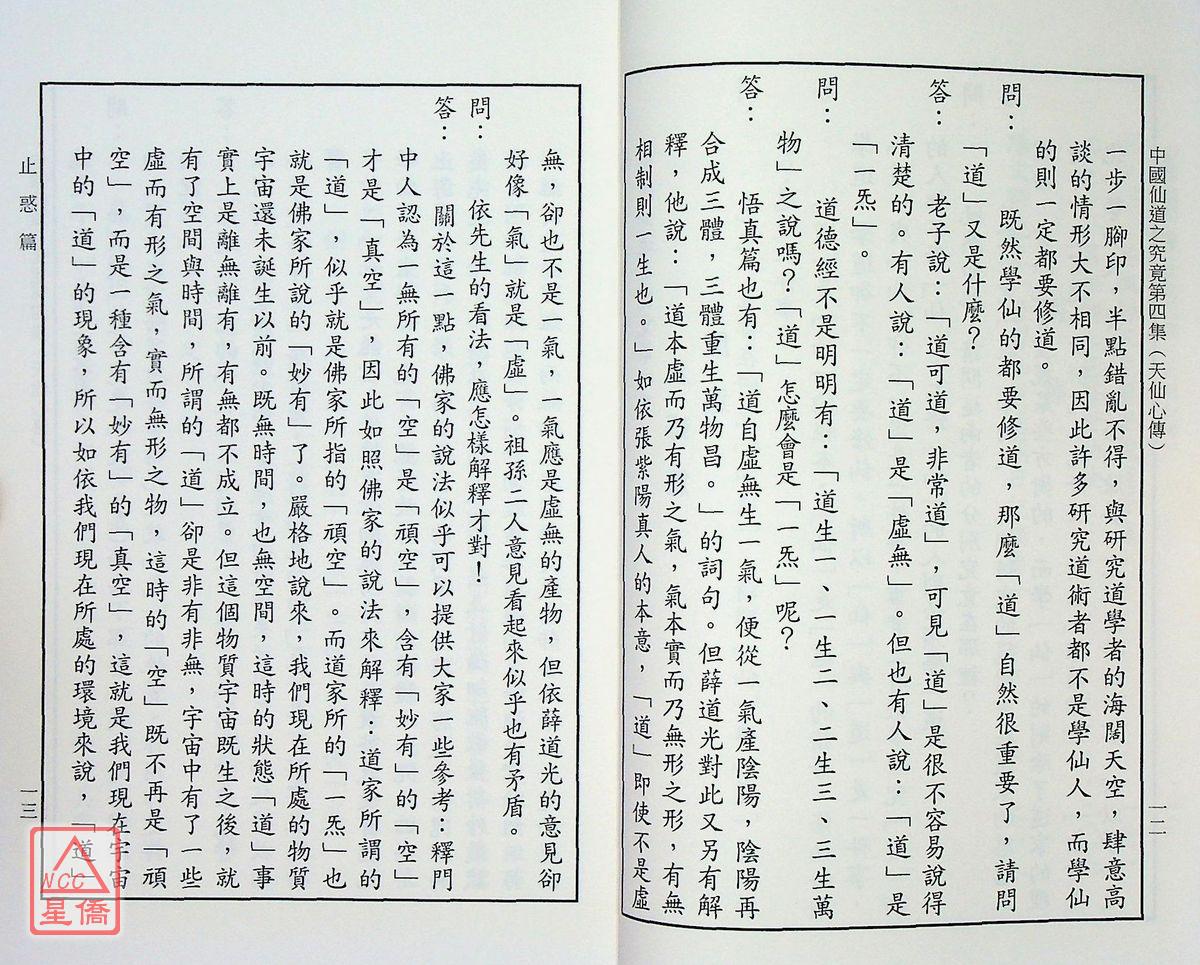 中國仙道之究竟第四集（天仙心傳）
一步一腳印，半點錯亂不得，與研究道學者的海闊天空，肆意高
談的情形大不相同，因此許多研究道術者都不是學仙人，而學仙
的則一定都要修道。
問：　　既然學仙的都要修道，那麼「道」自然很重要了，請問
「道」又是什麼？
答：　　老子說：「道可道，非常道」，可見「道」是很不容易說得
清楚的。有人說：「道」是「虛無」。但也有人說：「道」是
「一炁」。
問：　　道德經不是明明有：「道生一、一生二、二生三、三生萬
物」之說嗎？「道」怎麼會是「一炁」呢？
答：　　悟真篇也有：「道自虛無生一氣，便從一氣產陰陽，陰陽再
合成三體，三體重生萬物昌。」的詞句。但薛道光對此又另有解
釋，他說：「道本虛而乃有形之氣，氣本實而乃無形之形，有無
相制則一生也。」如依張紫陽真人的本意，「道」即使不是虛
一二
無，卻也不是一氣，一氣應是虛無的產物，但依薛道光的意見卻
好像「氣」就是「虛」。祖孫二人意見看起來似乎也有矛盾。
問：　　依先生的看法，應怎樣解釋才對！
答：　　關於這一點，佛家的說法似乎可以提供大家一些參考：釋門
中人認為一無所有的「空」是「頑空」，含有「妙有」的「空」
才是「真空」，因此如照佛家的說法來解釋：道家所謂的
「道」，似乎就是佛家所指的「頑空」。而道家所的「一炁」也
就是佛家所說的「妙有」了。嚴格地說來，我們現在所處的物質
宇宙還未誕生以前。既無時間，也無空間，這時的狀態「道」事
實上是離無離有，有無都不成立。但這個物質宇宙既生之後，就
有了空間與時間，所謂的「道」卻是非有非無，宇宙中有了一些
虛而有形之氣，實而無形之物，這時的「空」既不再是「頑
空」，而是一種含有「妙有」的「真空」，這就是我們現在宇宙
中的「道」的現象，所以如依我們現在所處的環境來說，「道」
止惑篇
一三
WCC
星僑